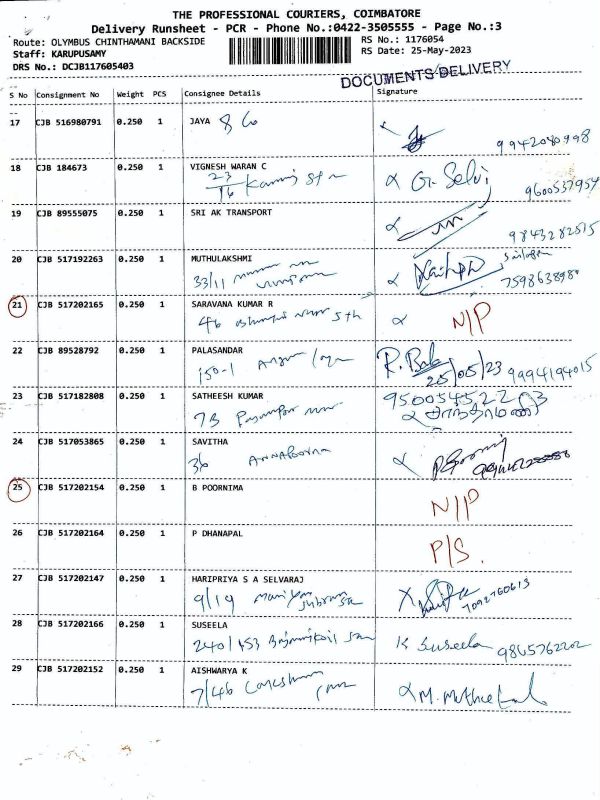 THE PROFESSIONAL COURIERS, COIMBATORE
Delivery Runsheet - PCR - Phone No.:0422-3505555 - Page No.:3
Route: OLYMBUS CHINTHAMANI BACKSIDE RS No.: 1176054
Staff: KARUPUSAMY RS Date: 25-May-2023
DRS No.: DCJB117605403
DOCUMENTS DELIVERY
S No Consignment No Weight PCS Consignee Details Signature
17 CJB 516980791 0.250 1 JAYA 86
9942040998
18 CJB 184673 0.250 1 VIGNESH WARAN C
23/16 G. Selvi
9600537954
19 CJB 89555075 0.250 1 SRI AK TRANSPORT
9843282515
20 CJB 517192263 0.250 1 MUTHULAKSHMI
33/11 7598638989
21 CJB 517202165 0.250 1 SARAVANA KUMAR R
46 5th N/P
22 CJB 89528792 0.250 1 PALASANDAR
150-1 R. Bala
25/05/23 9994194015
23 CJB 517182808 0.250 1 SATHEESH KUMAR
7B
24 CJB 517053865 0.250 1 SAVITHA
36 ANNAPOORNA
25 CJB 517202154 0.250 1 B POORNIMA
N/P
26 CJB 517202164 0.250 1 P DHANAPAL
P/S.
27 CJB 517202147 0.250 1 HARIPRIYA S A SELVARAJ
9/19 7092760613
28 CJB 517202166 0.250 1 SUSEELA
240/153 K Suseela 9865762202
29 CJB 517202152 0.250 1 AISHWARYA K
7/46 M.